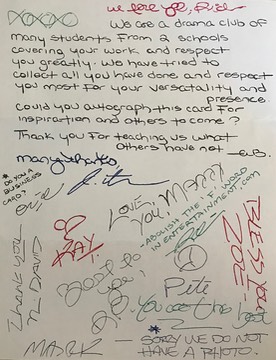 XOXOXO
we love you,
We are a drama club of
many students from 2 schools
covering your work and respect
you greatly. We have tried to
collect all you have done and respect
you most for your versatality and
presence.
Could you autograph this card for
inspiration and others to come?
Thank you for teaching us what
Others have not
many thanks
* DO YOU A
BUSINESS
CARD?
LOVE YOU, MARRY
-ABOLISH THE "F" WORD
IN ENTERTAINMENT.COM
BLESS YOU
ZOE
RAY
THANK YOU
DAVID
Pete
You are the best
MARK
* SORRY WE DO NOT
HAVE A PHOTO.